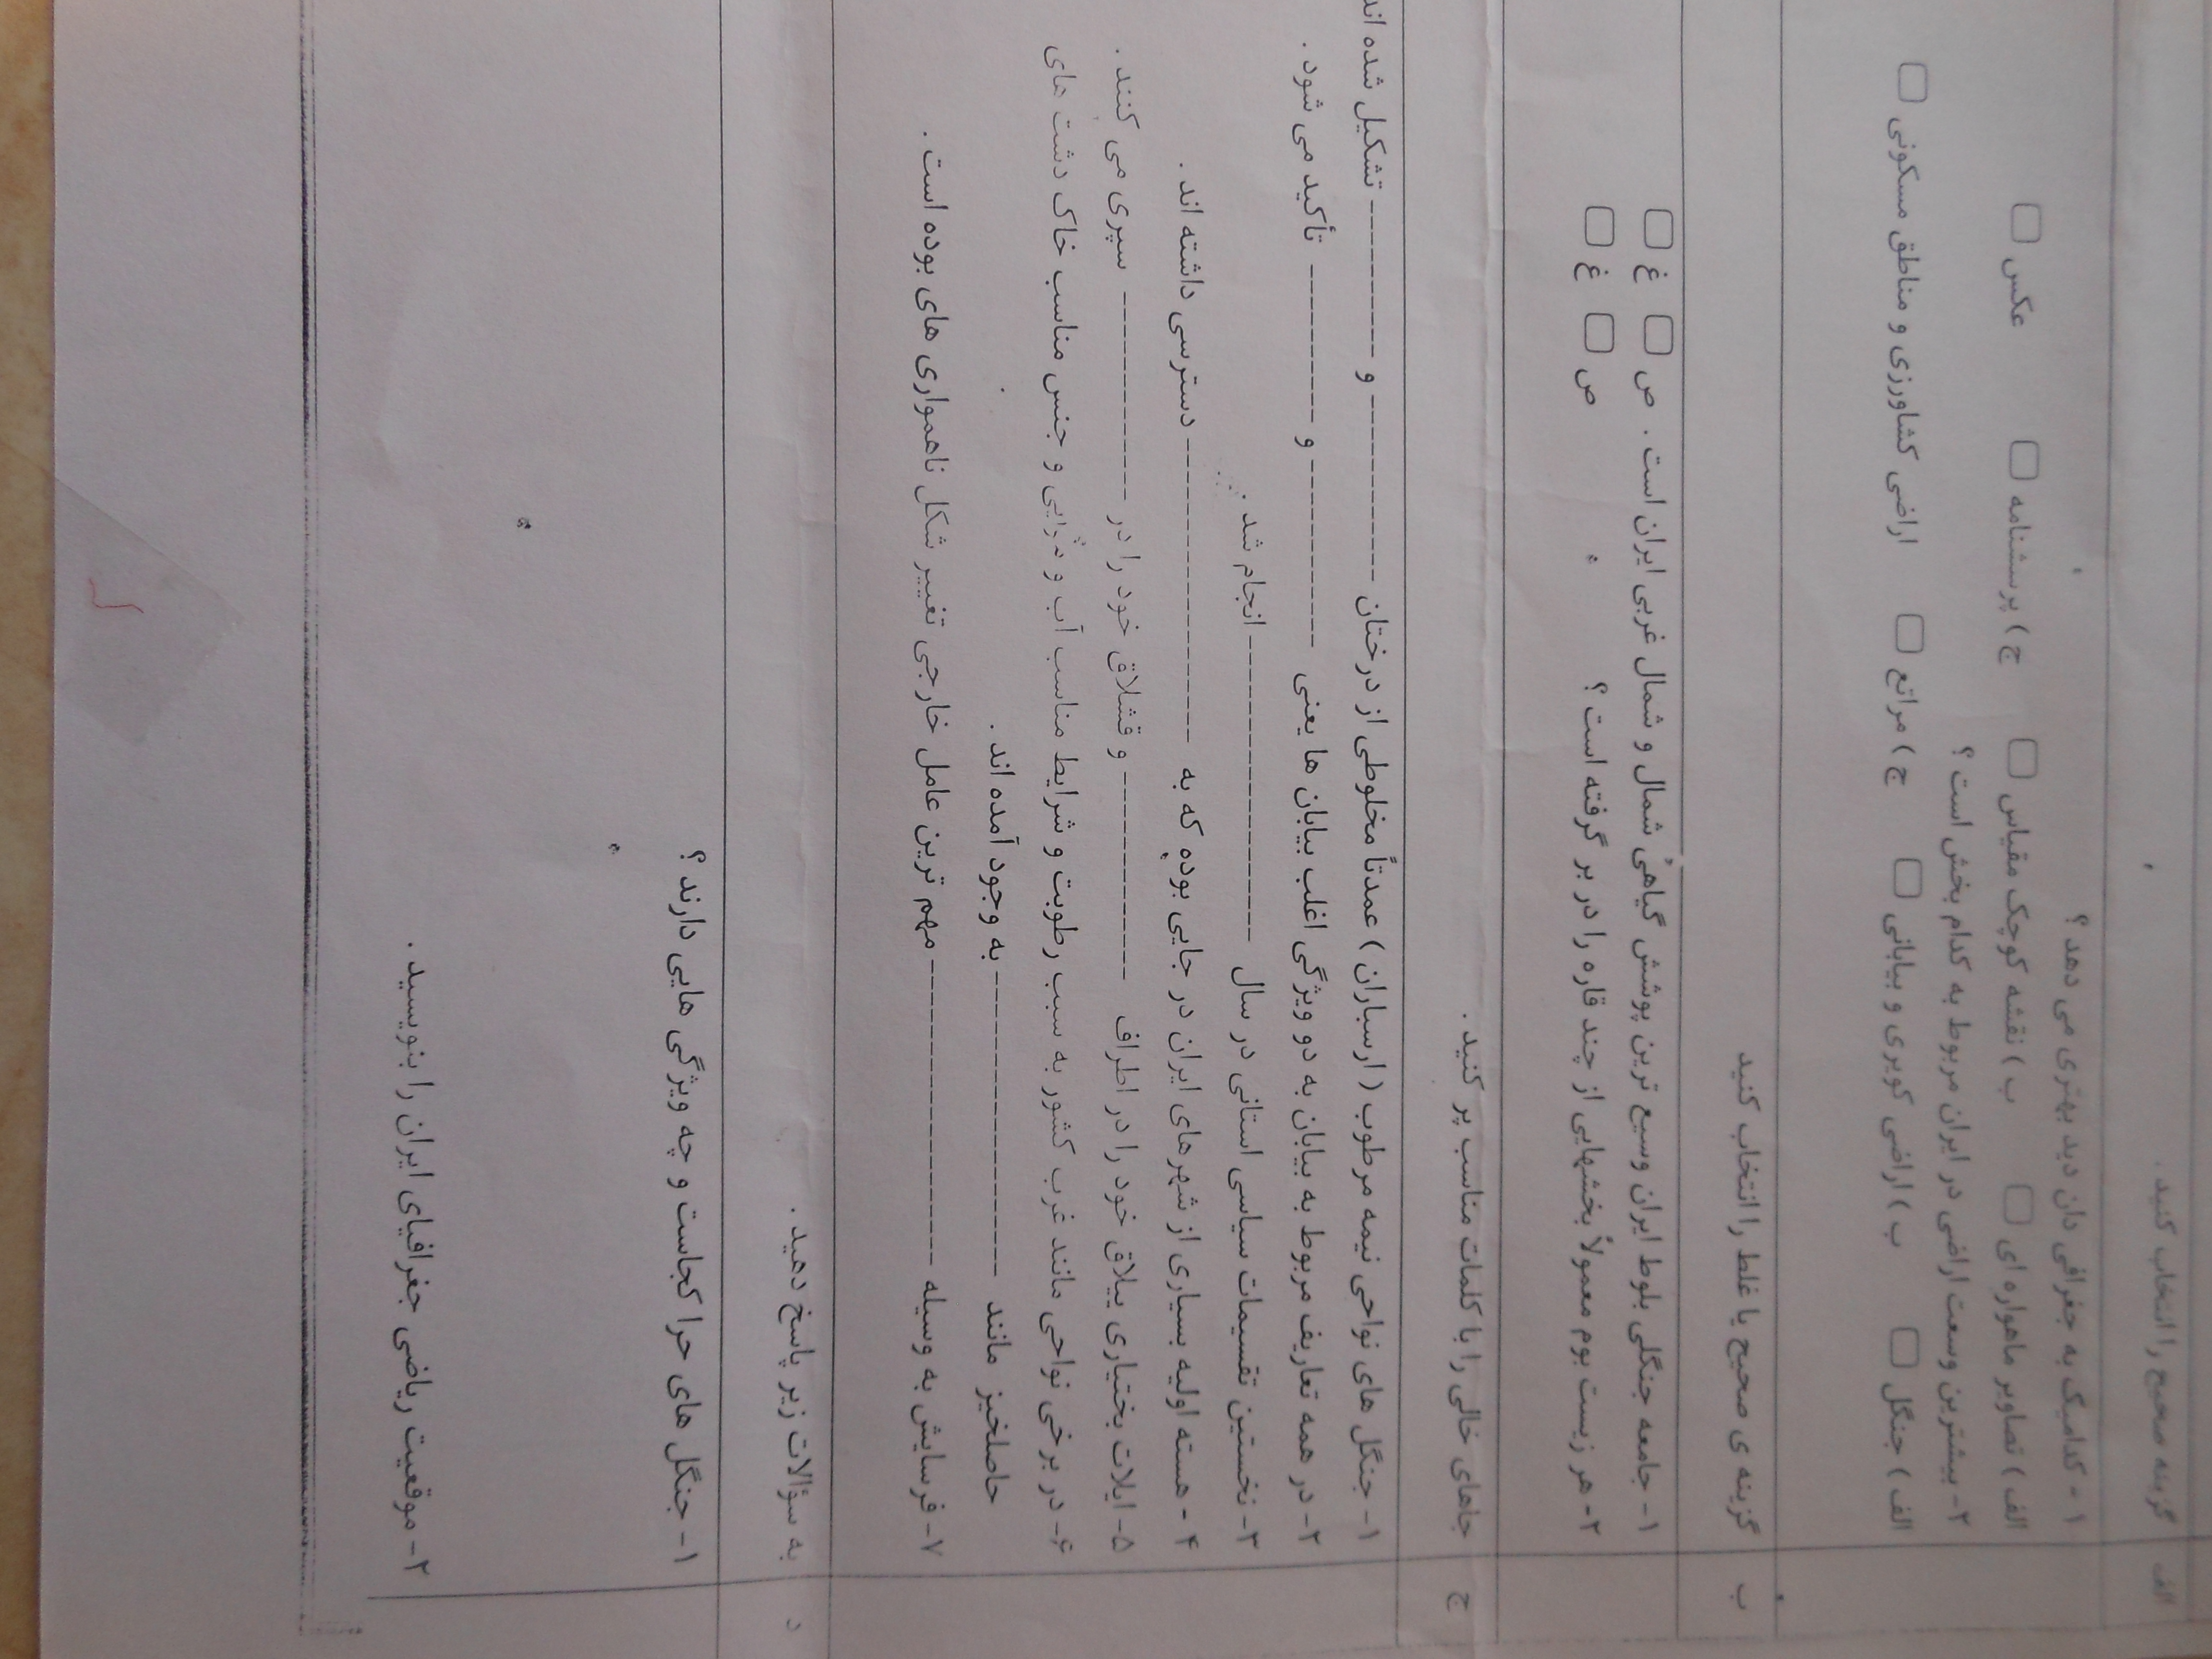 الف گزینه صحیح را انتخاب کنید .
۱- کدامیک به جغرافی دان دید بهتری می دهد ؟
الف ) تصاویر ماهواره ای ب ) نقشه کوچک مقیاس ج ) پرسشنامه عکس
۲- بیشترین وسعت اراضی در ایران مربوط به کدام بخش است ؟
الف ) جنگل ب ) اراضی کویری و بیابانی ج ) مراتع اراضی کشاورزی و مناطق مسکونی
ب گزینه ی صحیح یا غلط را انتخاب کنید
۱- جامعه جنگلی بلوط ایران وسیع ترین پوشش گیاهی شمال و شمال غربی ایران است . ص غ
۲- هر زیست بوم معمولاً بخشهایی از چند قاره را در بر گرفته است ؟ ص غ
ج جاهای خالی را با کلمات مناسب پر کنید .
۱- جنگل های نواحی نیمه مرطوب ( ارسباران ) عمدتاً مخلوطی از درختان ------------ و ------------ تشکیل شده اند
۲- در همه تعاریف مربوط به بیابان به دو ویژگی اغلب بیابان ها یعنی ------------ و ------------ تأکید می شود .
۳- نخستین تقسیمات سیاسی استانی در سال -------------------- انجام شد .
۴- هسته اولیه بسیاری از شهرهای ایران در جایی بوده که به -------------------- دسترسی داشته اند .
۵- ایلات بختیاری ییلاق خود را در اطراف -------------- و قشلاق خود را در -------------- سپری می کنند .
۶- در برخی نواحی مانند غرب کشور به سبب رطوبت و شرایط مناسب آب و هوایی و جنس مناسب خاک دشت های
حاصلخیز مانند -------------------- به وجود آمده اند .
۷- فرسایش به وسیله -------------------- مهم ترین عامل خارجی تغییر شکل ناهمواری های بوده است .
د به سؤالات زیر پاسخ دهید .
۱- جنگل های حرا کجاست و چه ویژگی هایی دارند ؟
۲- موقعیت ریاضی جغرافیای ایران را بنویسید .